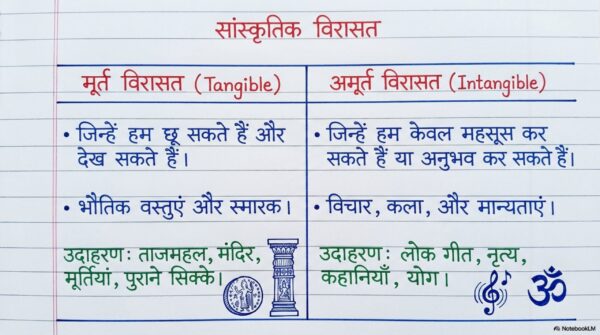 सांस्कृतिक विरासत
मूर्त विरासत (Tangible)
• जिन्हें हम छू सकते हैं और
देख सकते हैं।
• भौतिक वस्तुएं और स्मारक।
उदाहरण: ताजमहल, मंदिर,
मूर्तियां, पुराने सिक्के।
अमूर्त विरासत (Intangible)
• जिन्हें हम केवल महसूस कर
सकते हैं या अनुभव कर सकते हैं।
• विचार, कला, और मान्यताएं।
उदाहरण: लोक गीत, नृत्य,
कहानियाँ, योग।
ॐ
NotebookLM